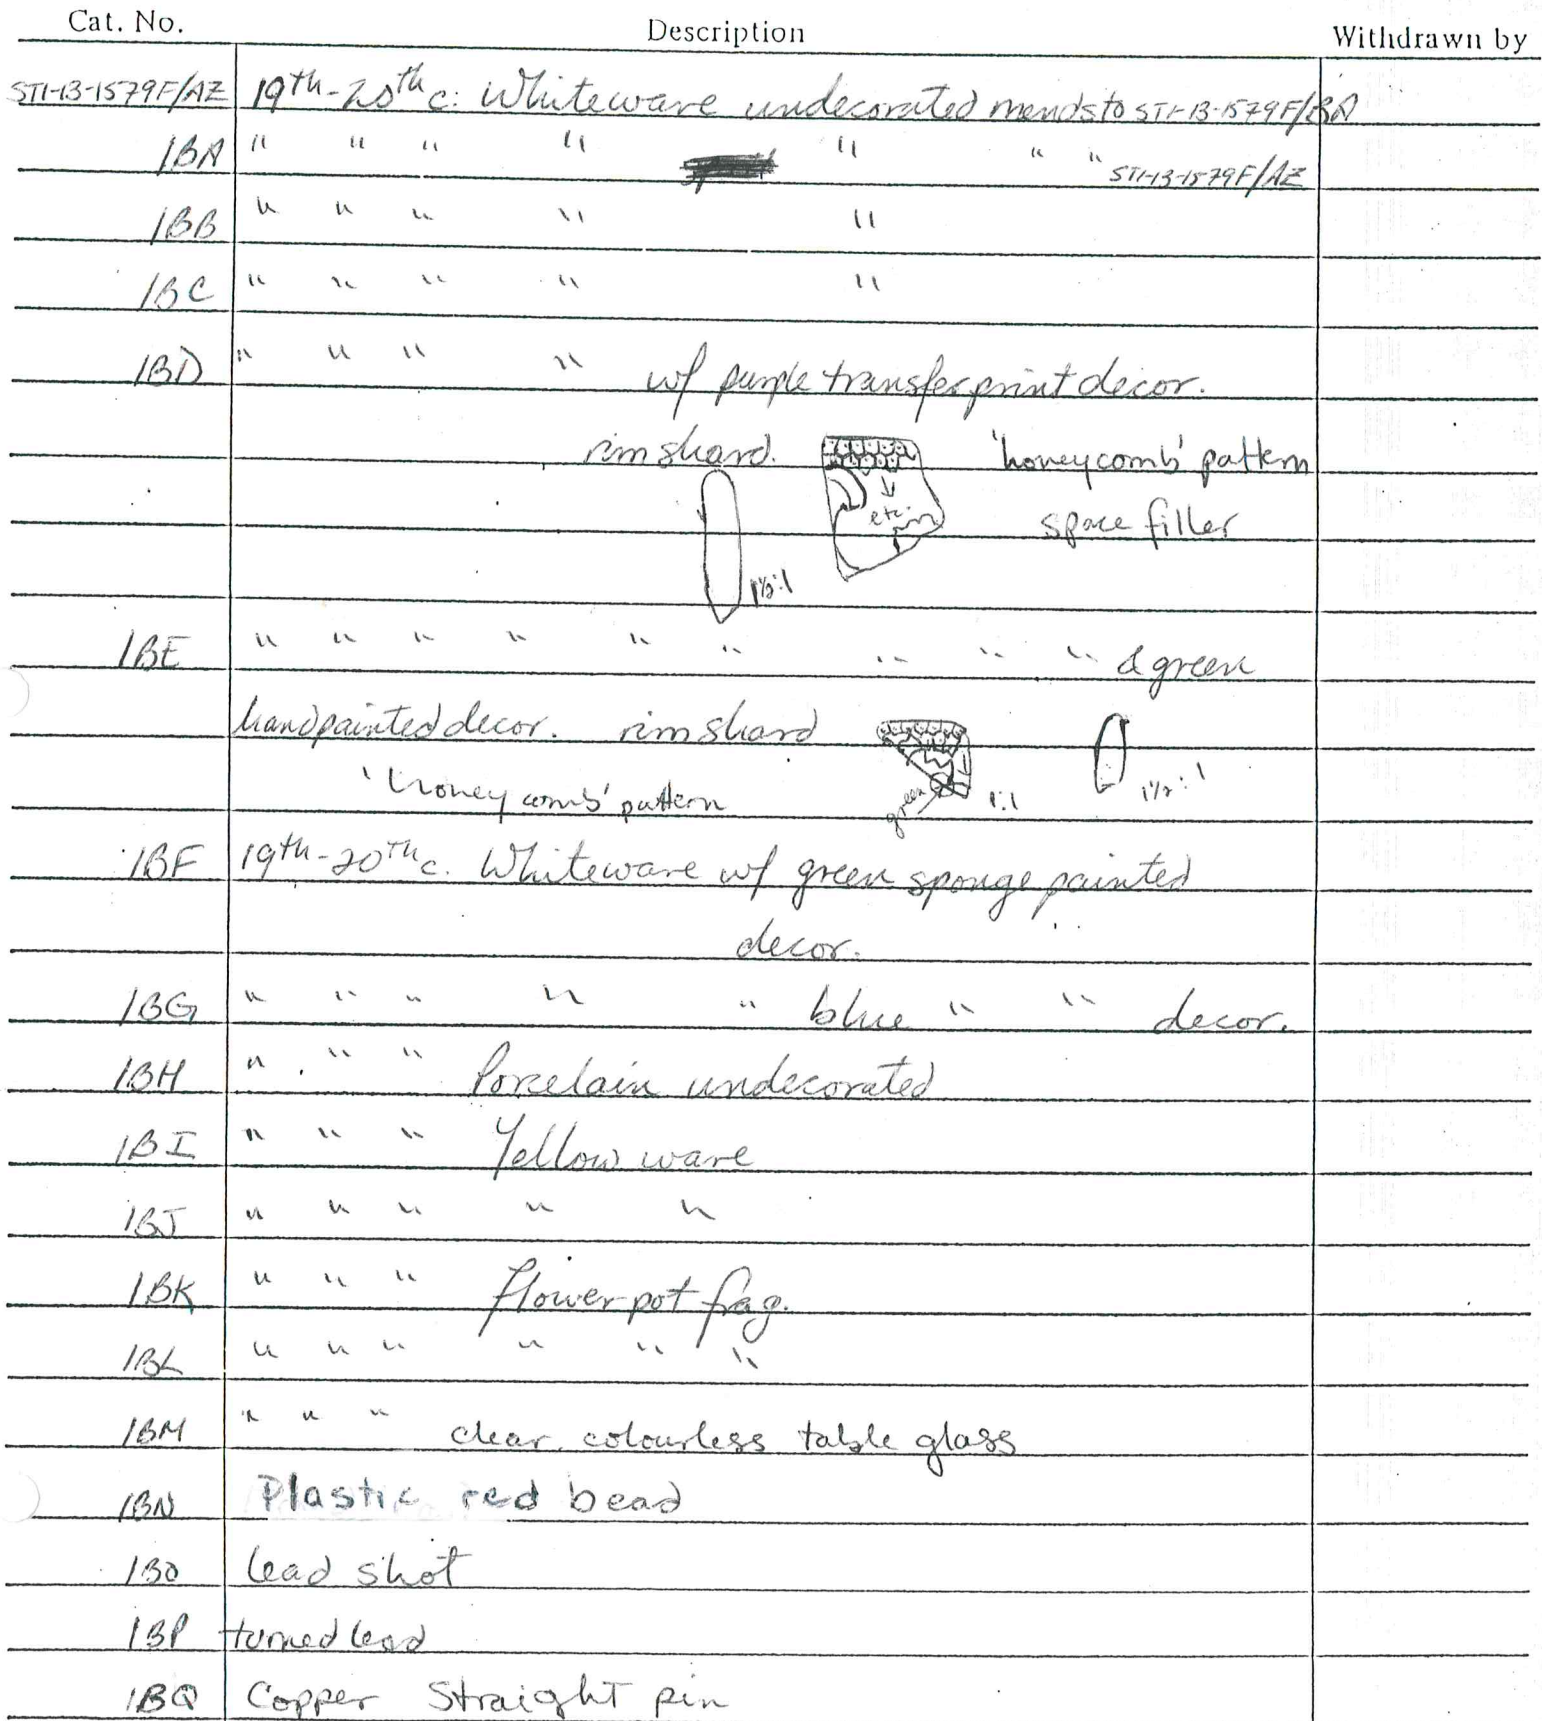 Cat. No. Description Withdrawn by
ST1-13-1579F/AZ 19th-20th c. Whiteware undecorated mends to ST1-13-1579F/BA
/BA " " " " " " " ST1-13-1579F/AZ
/BB " " " " "
/BC " " " " "
/BD " " " " w/ purple transferprint decor.
rim shard. 'honeycomb' pattern
etc. space filler
1½:1
/BE " " " " " " " " " & green
handpainted decor. rim shard
'honey comb' pattern green 1:1 1½:1
/BF 19th-20th c. Whiteware w/ green sponge painted
decor.
/BG " " " " " blue " " decor.
/BH " " " Porcelain undecorated
/BI " " " Yellow ware
/BJ " " " " "
/BK " " " flower pot frag.
/BL " " " " " "
/BM " " " clear colourless table glass
/BN Plastic red bead
/BO lead shot
/BP turned lead
/BQ Copper Straight pin